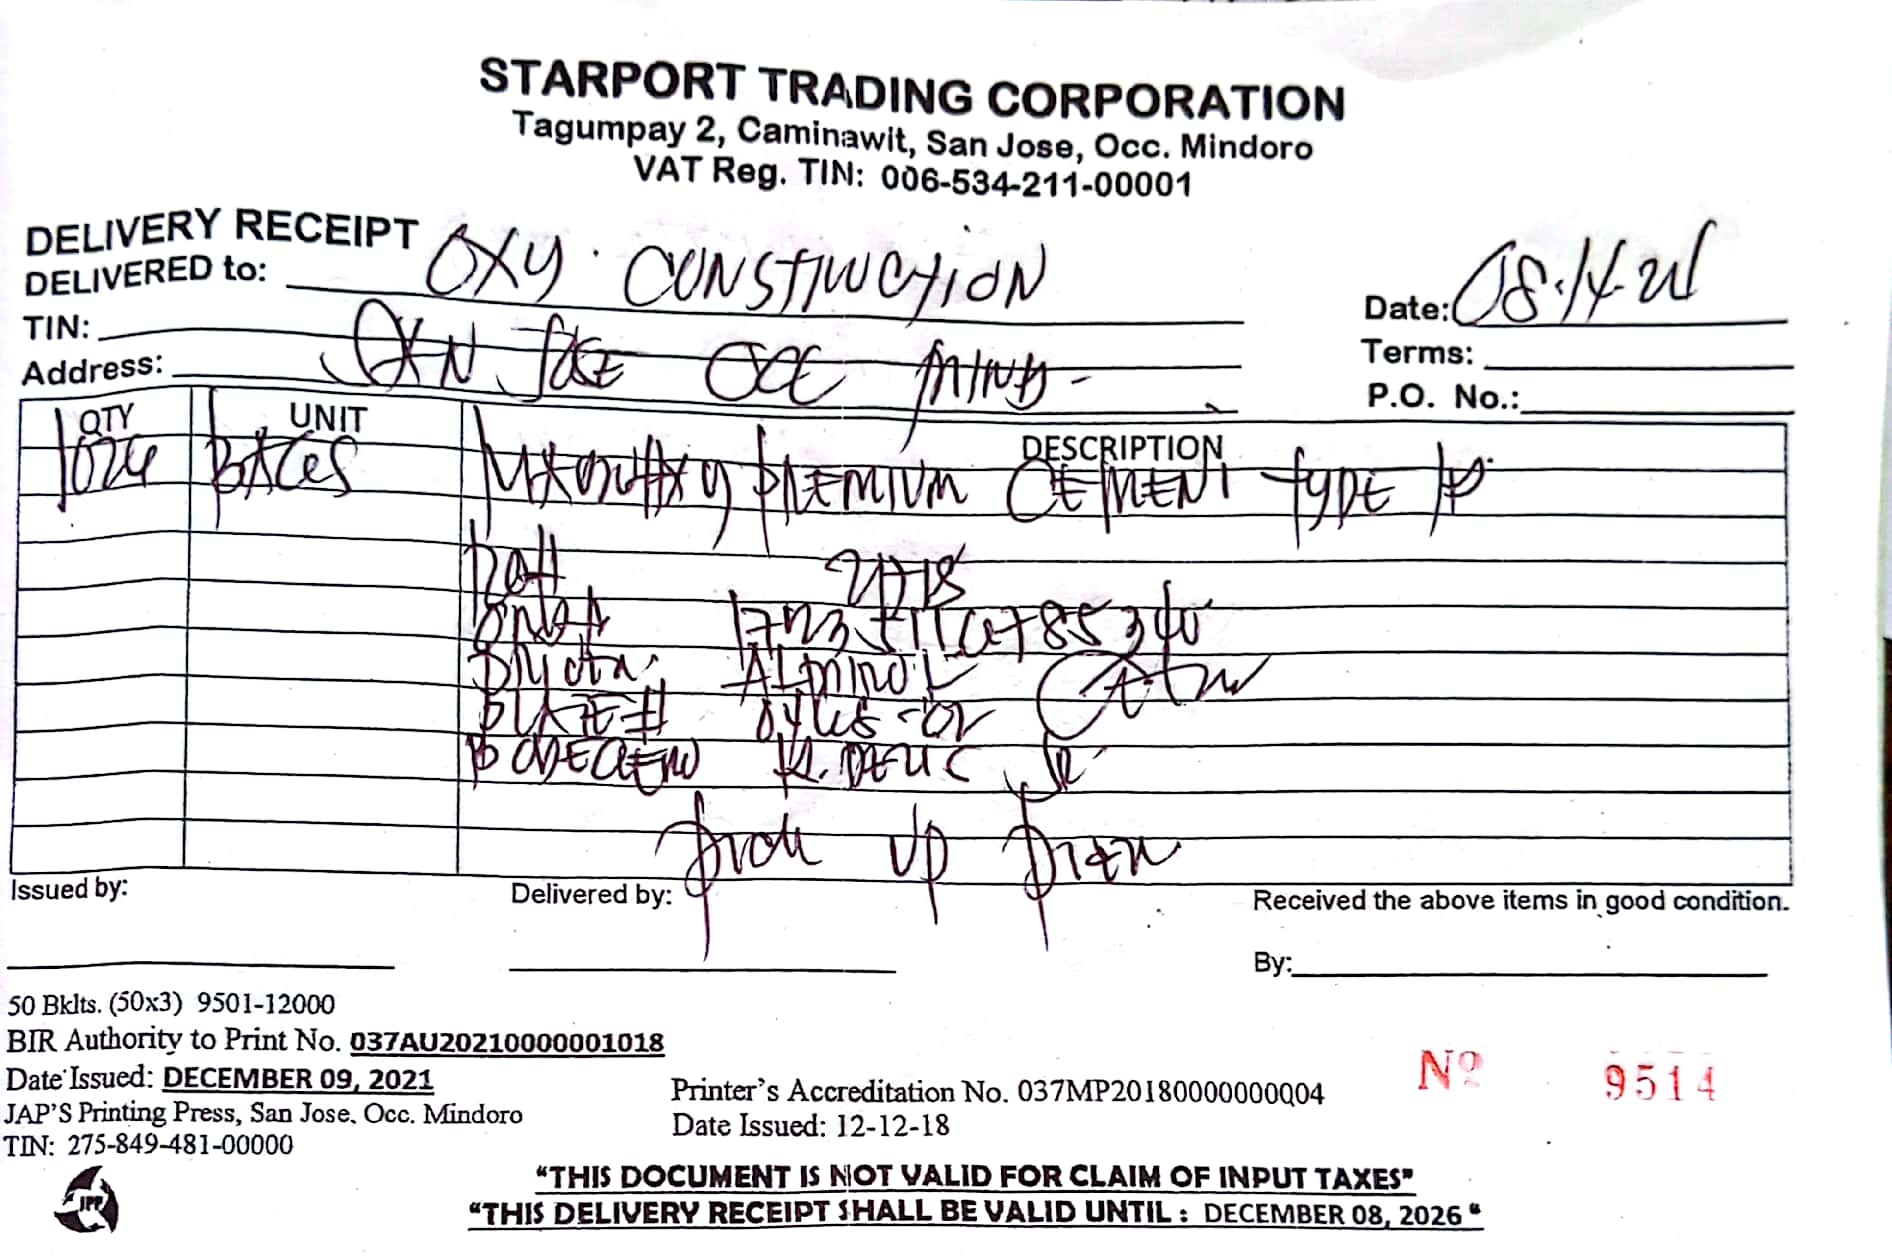 STARPORT TRADING CORPORATION
Tagumpay 2, Caminawit, San Jose, Occ. Mindoro
VAT Reg. TIN: 006-534-211-00001
DELIVERY RECEIPT
DELIVERED to: OXY. CONSTRUCTION
Date: 08.14.
TIN:
Terms:
Address: SAN JOSE OCC MIND-
P.O. No.:
QTY UNIT DESCRIPTION
1024 BAGS PREMIUM CEMENT TYPE 1P
PLATE #
K. Jr
pick up
Issued by:
Delivered by:
Received the above items in good condition.
By:
50 Bklts. (50x3) 9501-12000
BIR Authority to Print No. 037AU20210000001018
Date Issued: DECEMBER 09, 2021
JAP'S Printing Press, San Jose, Occ. Mindoro
TIN: 275-849-481-00000
Printer's Accreditation No. 037MP20180000000004
Date Issued: 12-12-18
Nº 9514
JPP
"THIS DOCUMENT IS NOT VALID FOR CLAIM OF INPUT TAXES"
"THIS DELIVERY RECEIPT SHALL BE VALID UNTIL : DECEMBER 08, 2026"